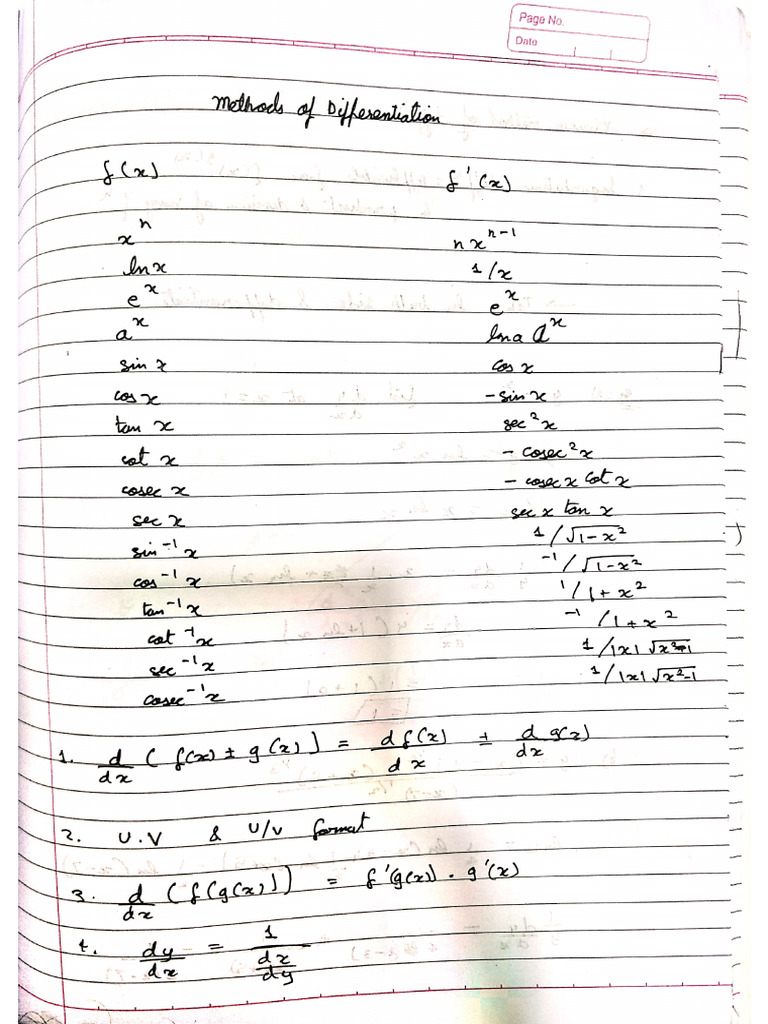 Page No.
Date
Methods of Differentiation
f(x) f'(x)
xⁿ nxⁿ⁻¹
ln x 1/x
eˣ eˣ
aˣ lna aˣ
sin x cos x
cos x -sin x
tan x sec²x
cot x - cosec²x
cosec x - cosec x cot x
sec x sec x tan x
sin⁻¹x 1/√(1-x²)
cos⁻¹x -1/√(1-x²)
tan⁻¹x 1/1+x²
cot⁻¹x -1/1+x²
sec⁻¹x 1/|x|√(x²-1)
cosec⁻¹x 1/|x|√(x²-1)
1. d/dx (f(x) ± g(x)) = d f(x)/dx ± d/dx g(x)
2. U.V & U/V format
3. d/dx (f(g(x))) = f'(g(x)) . g'(x)
4. dy/dx = 1/(dx/dy)